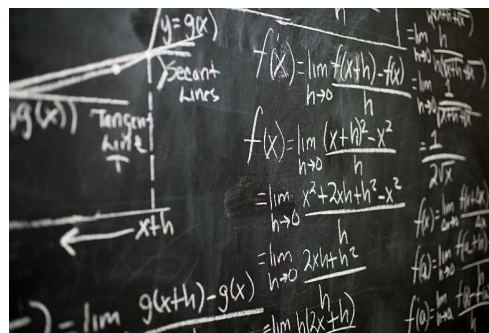 y=g(x)
Secant
Lines
g(x))
Tangent
Line
T
x+h
= lim g(x+h)-g(x)
f'(x)=lim f(x+h)-f(x)
h→0 h
f'(x)=lim (x+h)²-x²
h→0 h
=lim x²+2xh+h²-x²
h→0 h
=lim 2xh+h²
h→0 h
=lim h(2x+h)
=lim h
h→0
=lim 1
h→0
=1
2√x
f'(x)=lim
f'(a)=lim
f'(a)=lim
h→0